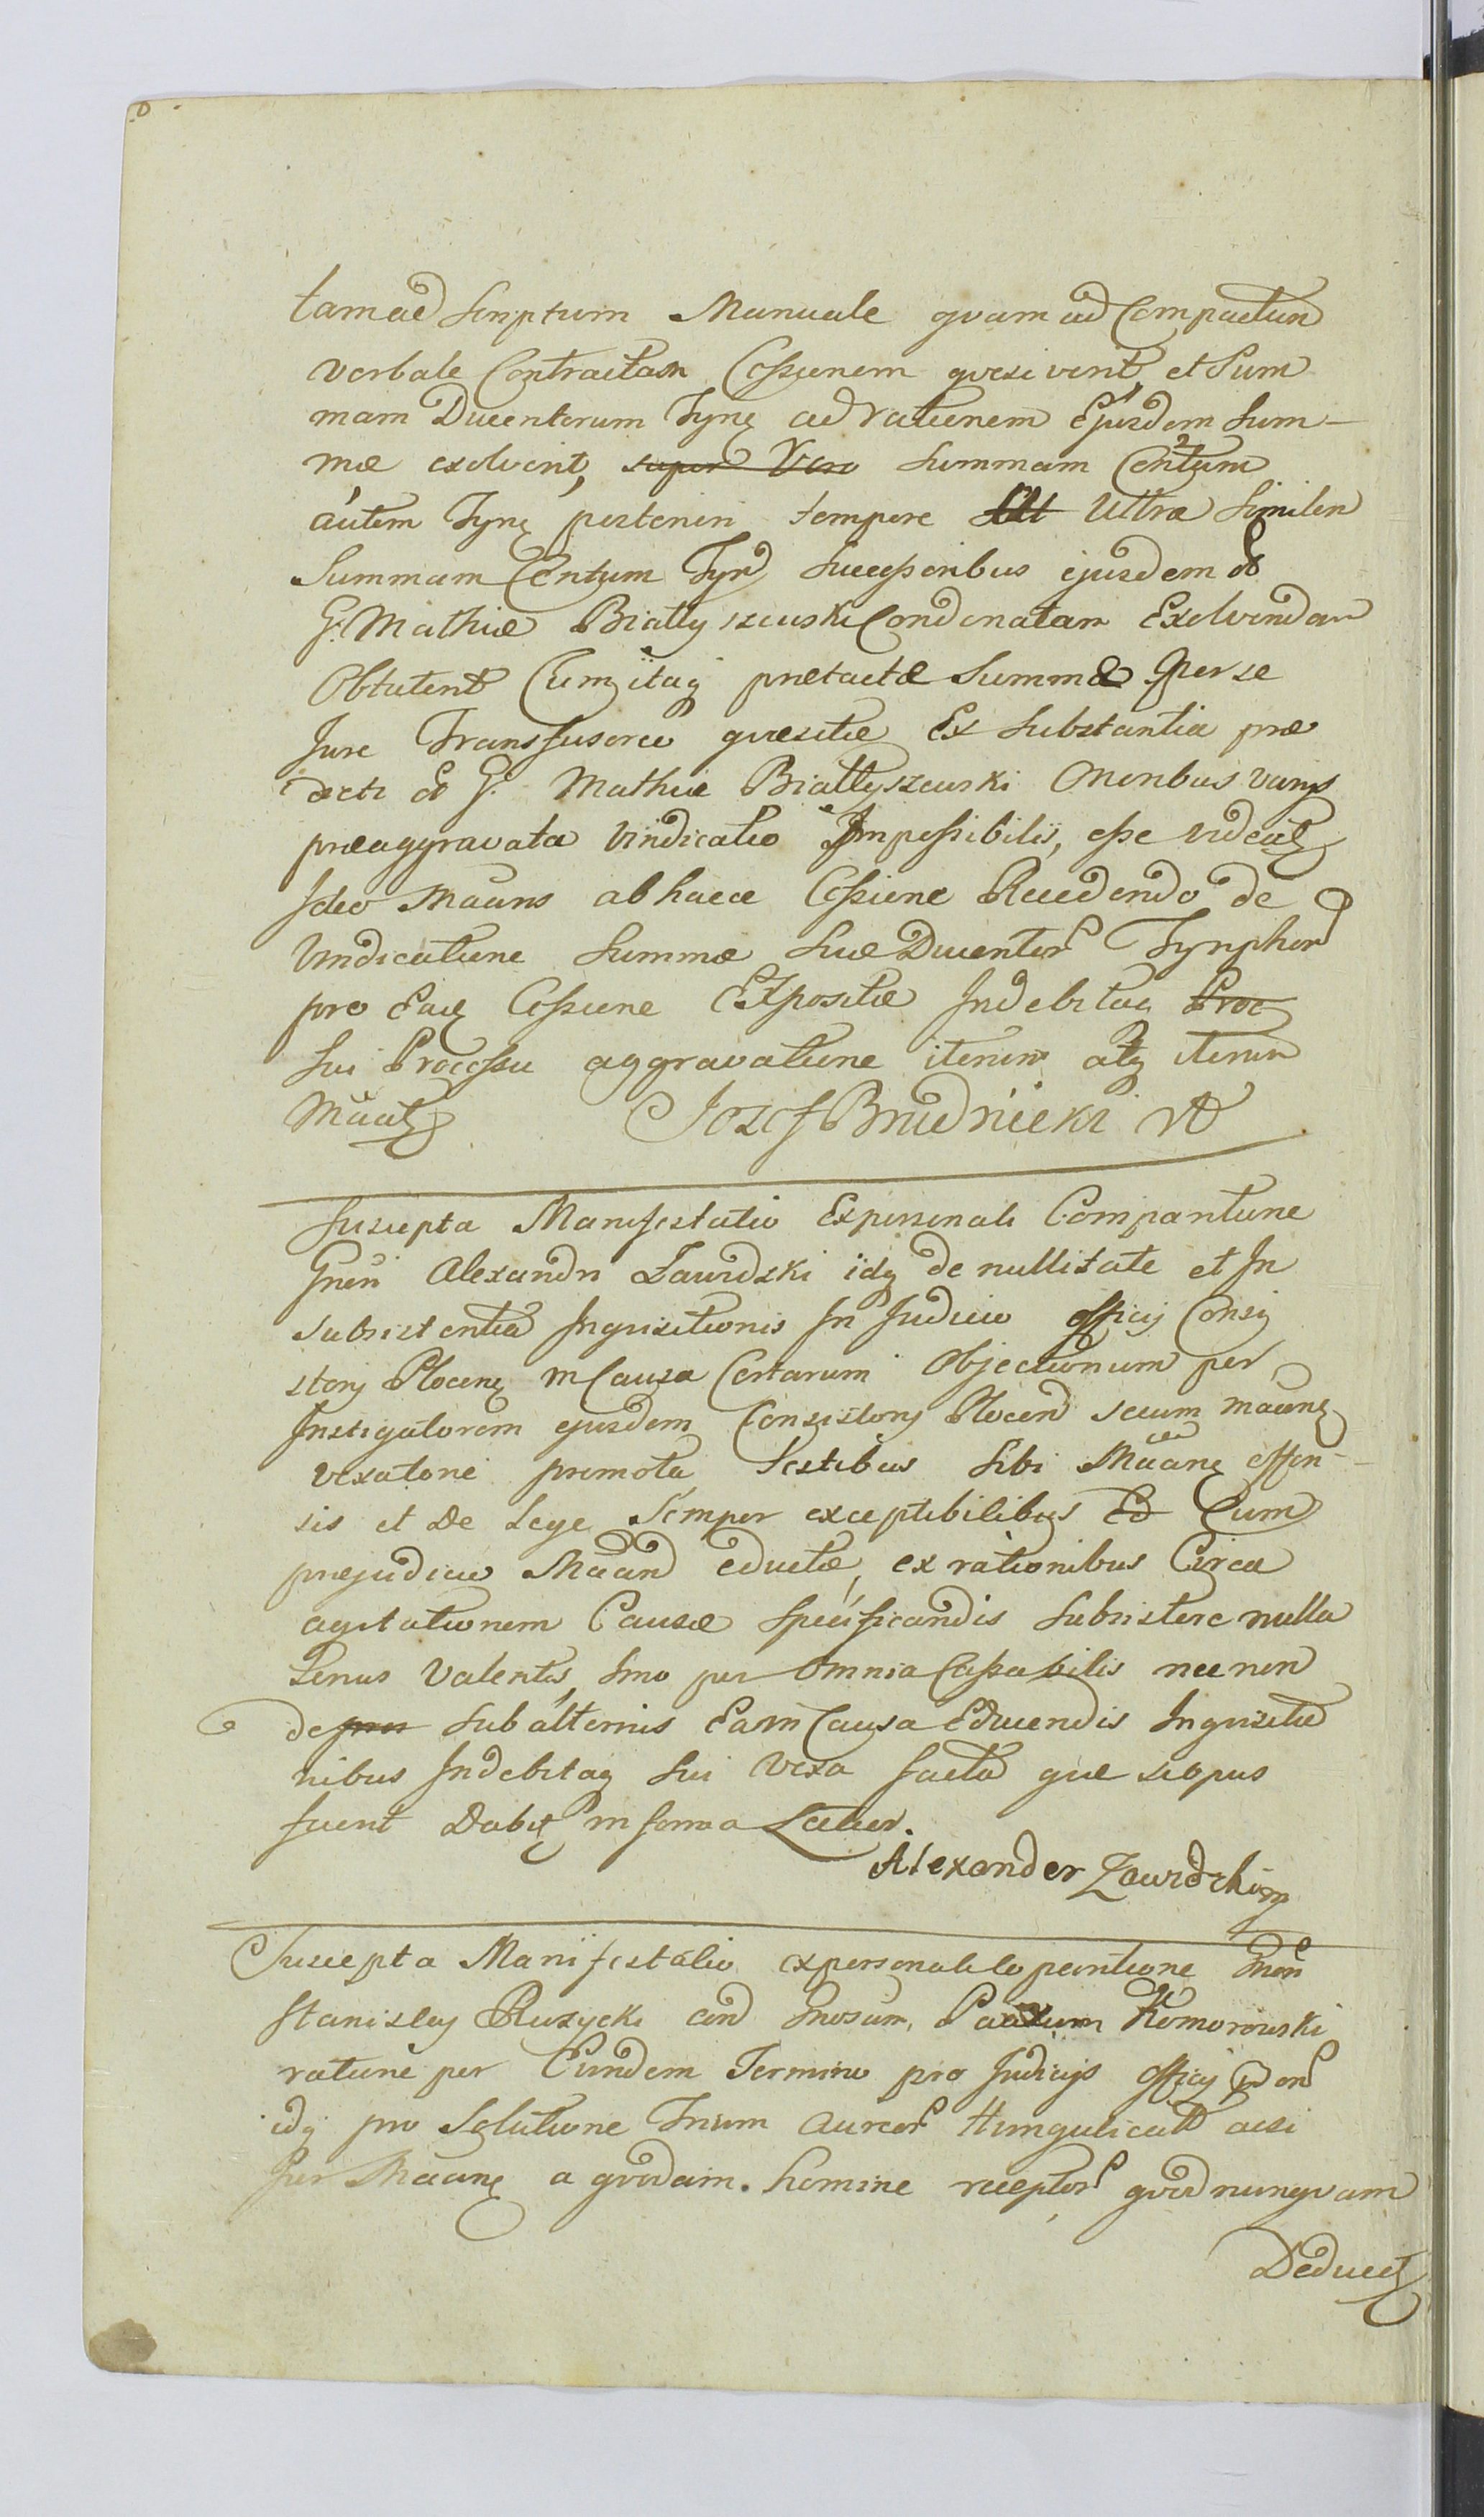 tam ad Scriptum Manuale qvam ad Compactum
verbale Contractam Cessionem qvesiverit, et Sum
mam Ducentorum Tynę ad rationem Ejusdem Sum-
mæ exolverit, super Vero Summam Centum
autem Tynę posteriori tempore Ult Ultra Similem
Summam Centum Tynf Successoribus ejusdem
G. Mathiæ Białłyszewski Condonatam Exolvendam
Obtulerit Cum itaq prætactæ Summæ per se
Jure Transfusorio qvæsitæ Ex Substantia præ
dicti G. Mathiæ Białłyszewski Oneribus varijs
præaggravata Vindicatio Impossibilis, esse videatz
Ideo Maans ab hacce Cessione Recedendo de
Vindicatione Summæ Suæ Ducentor Tynphor
pro Eaq Cessione Expositæ Indebitaq Proc
Sui Processu aggravatione iterum atq iterum
Maatz Jozef Brudnicki
Suscepta Manifestatio Expersonali Comparitione
Gneri Alexandri Zawidzki idq de nullitate et In
subsistentia Inqvisitionis In Judicio Officij Consi
storij Plocenę in Causa Certarum Objectionum per
Instigatorem ejusdem Consistorij Plocen secum Maanę
vexatorie promota, Testibus Sibi Maanę offen-
sis et De Lege Semper exceptibilibus Ed Cum
præjudicio Maan eductæ, ex rationibus Circa
agitationem Causæ Specificandis Subsistere nulla
Tenus Valentis, Imo per Omnia Cassabilis nec non
de pro Subalternis Eam Causa Educendis Inqvisitio
nibus Indebitaq Sui Vexa facta qvæ si opus
fuerit Dabitz in forma Latiori.
Alexander Zawidzki mp
Suscepta Manifestatio expersonali Coparitione Gneri
Stanislaj Ruzycki cond Gnosum, Paulum Komorowski
ratione per Eundem Termino pro Judicijs Officij
idq pro Solutione Trium Aureor Hungaricall acsi
per Maanę a qvodam homine receptor qvod nunqvam
Deducetz